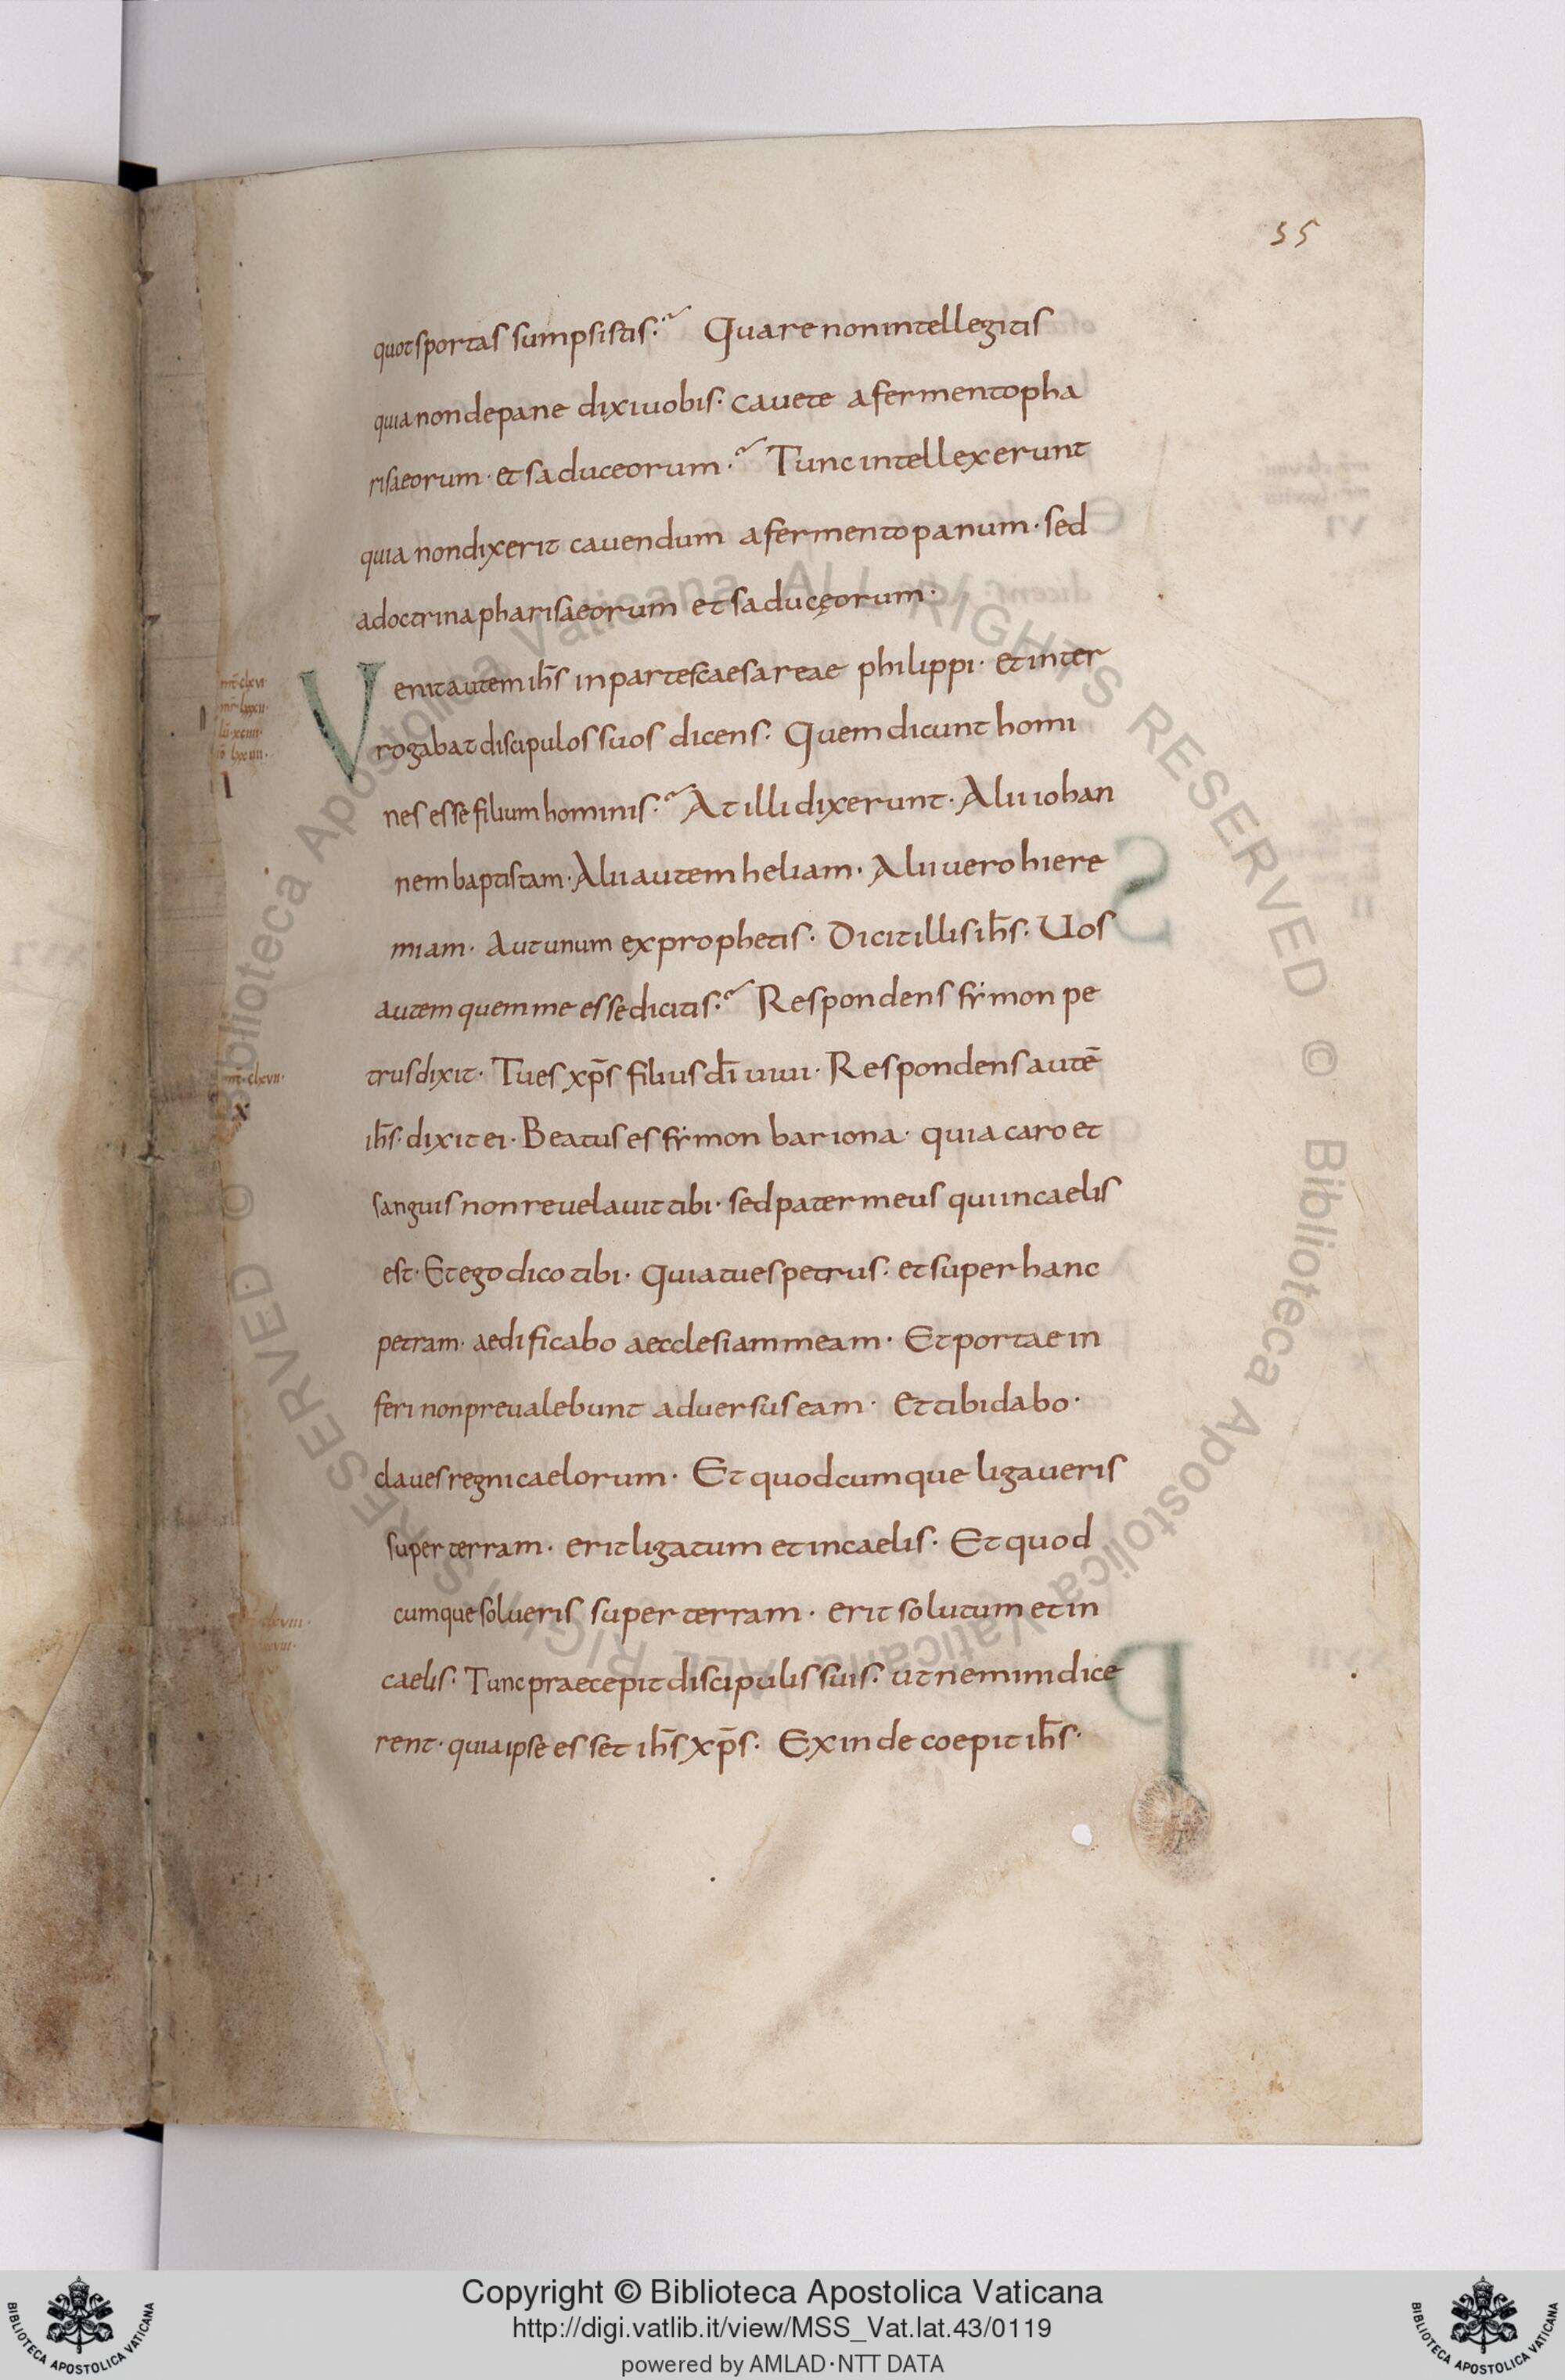 55
quot sportas sumpsistis. Quare non intellegitis
quia non de pane dixi uobis. cauete a fermento pha
risaeorum · et saduceorum. Tunc intellexerunt
quia non dixerit cauendum a fermento panum · sed
a doctrina pharisaeorum et saducęorum ·
Venit autem ih̄s in partes caesareae philippi · et inter
rogabat discipulos suos dicens. Quem dicunt homi
nes esse filium hominis. At illi dixerunt · Alii iohan
nem baptistam · Alii autem heliam · Alii uero hiere
miam · Aut unum ex prophetis · Dicit illis ih̄s. Uos
autem quem me esse dicitis. Respondens sẏmon pe
trus dixit · Tu es xp̄s filius dī uiui · Respondens autē
ih̄s · dixit ei · Beatus es sẏmon bar iona · quia caro et
sanguis non reuelauit tibi · sed pater meus qui in caelis
est · Et ego dico tibi · Quia tu es petrus · et super hanc
petram · aedificabo aecclesiam meam · Et portae in
feri non preualebunt aduersus eam · Et tibi dabo ·
claues regni caelorum · Et quodcumque ligaueris
super terram · erit ligatum et in caelis · Et quod
cumque solueris super terram · erit solutum et in
caelis · Tunc praecepit discipulis suis · ut nemini dice
rent · quia ipse esset ih̄s xp̄s · Exinde coepit ih̄s ·
© Biblioteca Apostolica Vaticana ALL RIGHTS RESERVED
© Biblioteca Apostolica Vaticana ALL RIGHTS RESERVED
Copyright © Biblioteca Apostolica Vaticana
http://digi.vatlib.it/view/MSS_Vat.lat.43/0119
powered by AMLAD·NTT DATA
BIBLIOTECA APOSTOLICA VATICANA
BIBLIOTECA APOSTOLICA VATICANA